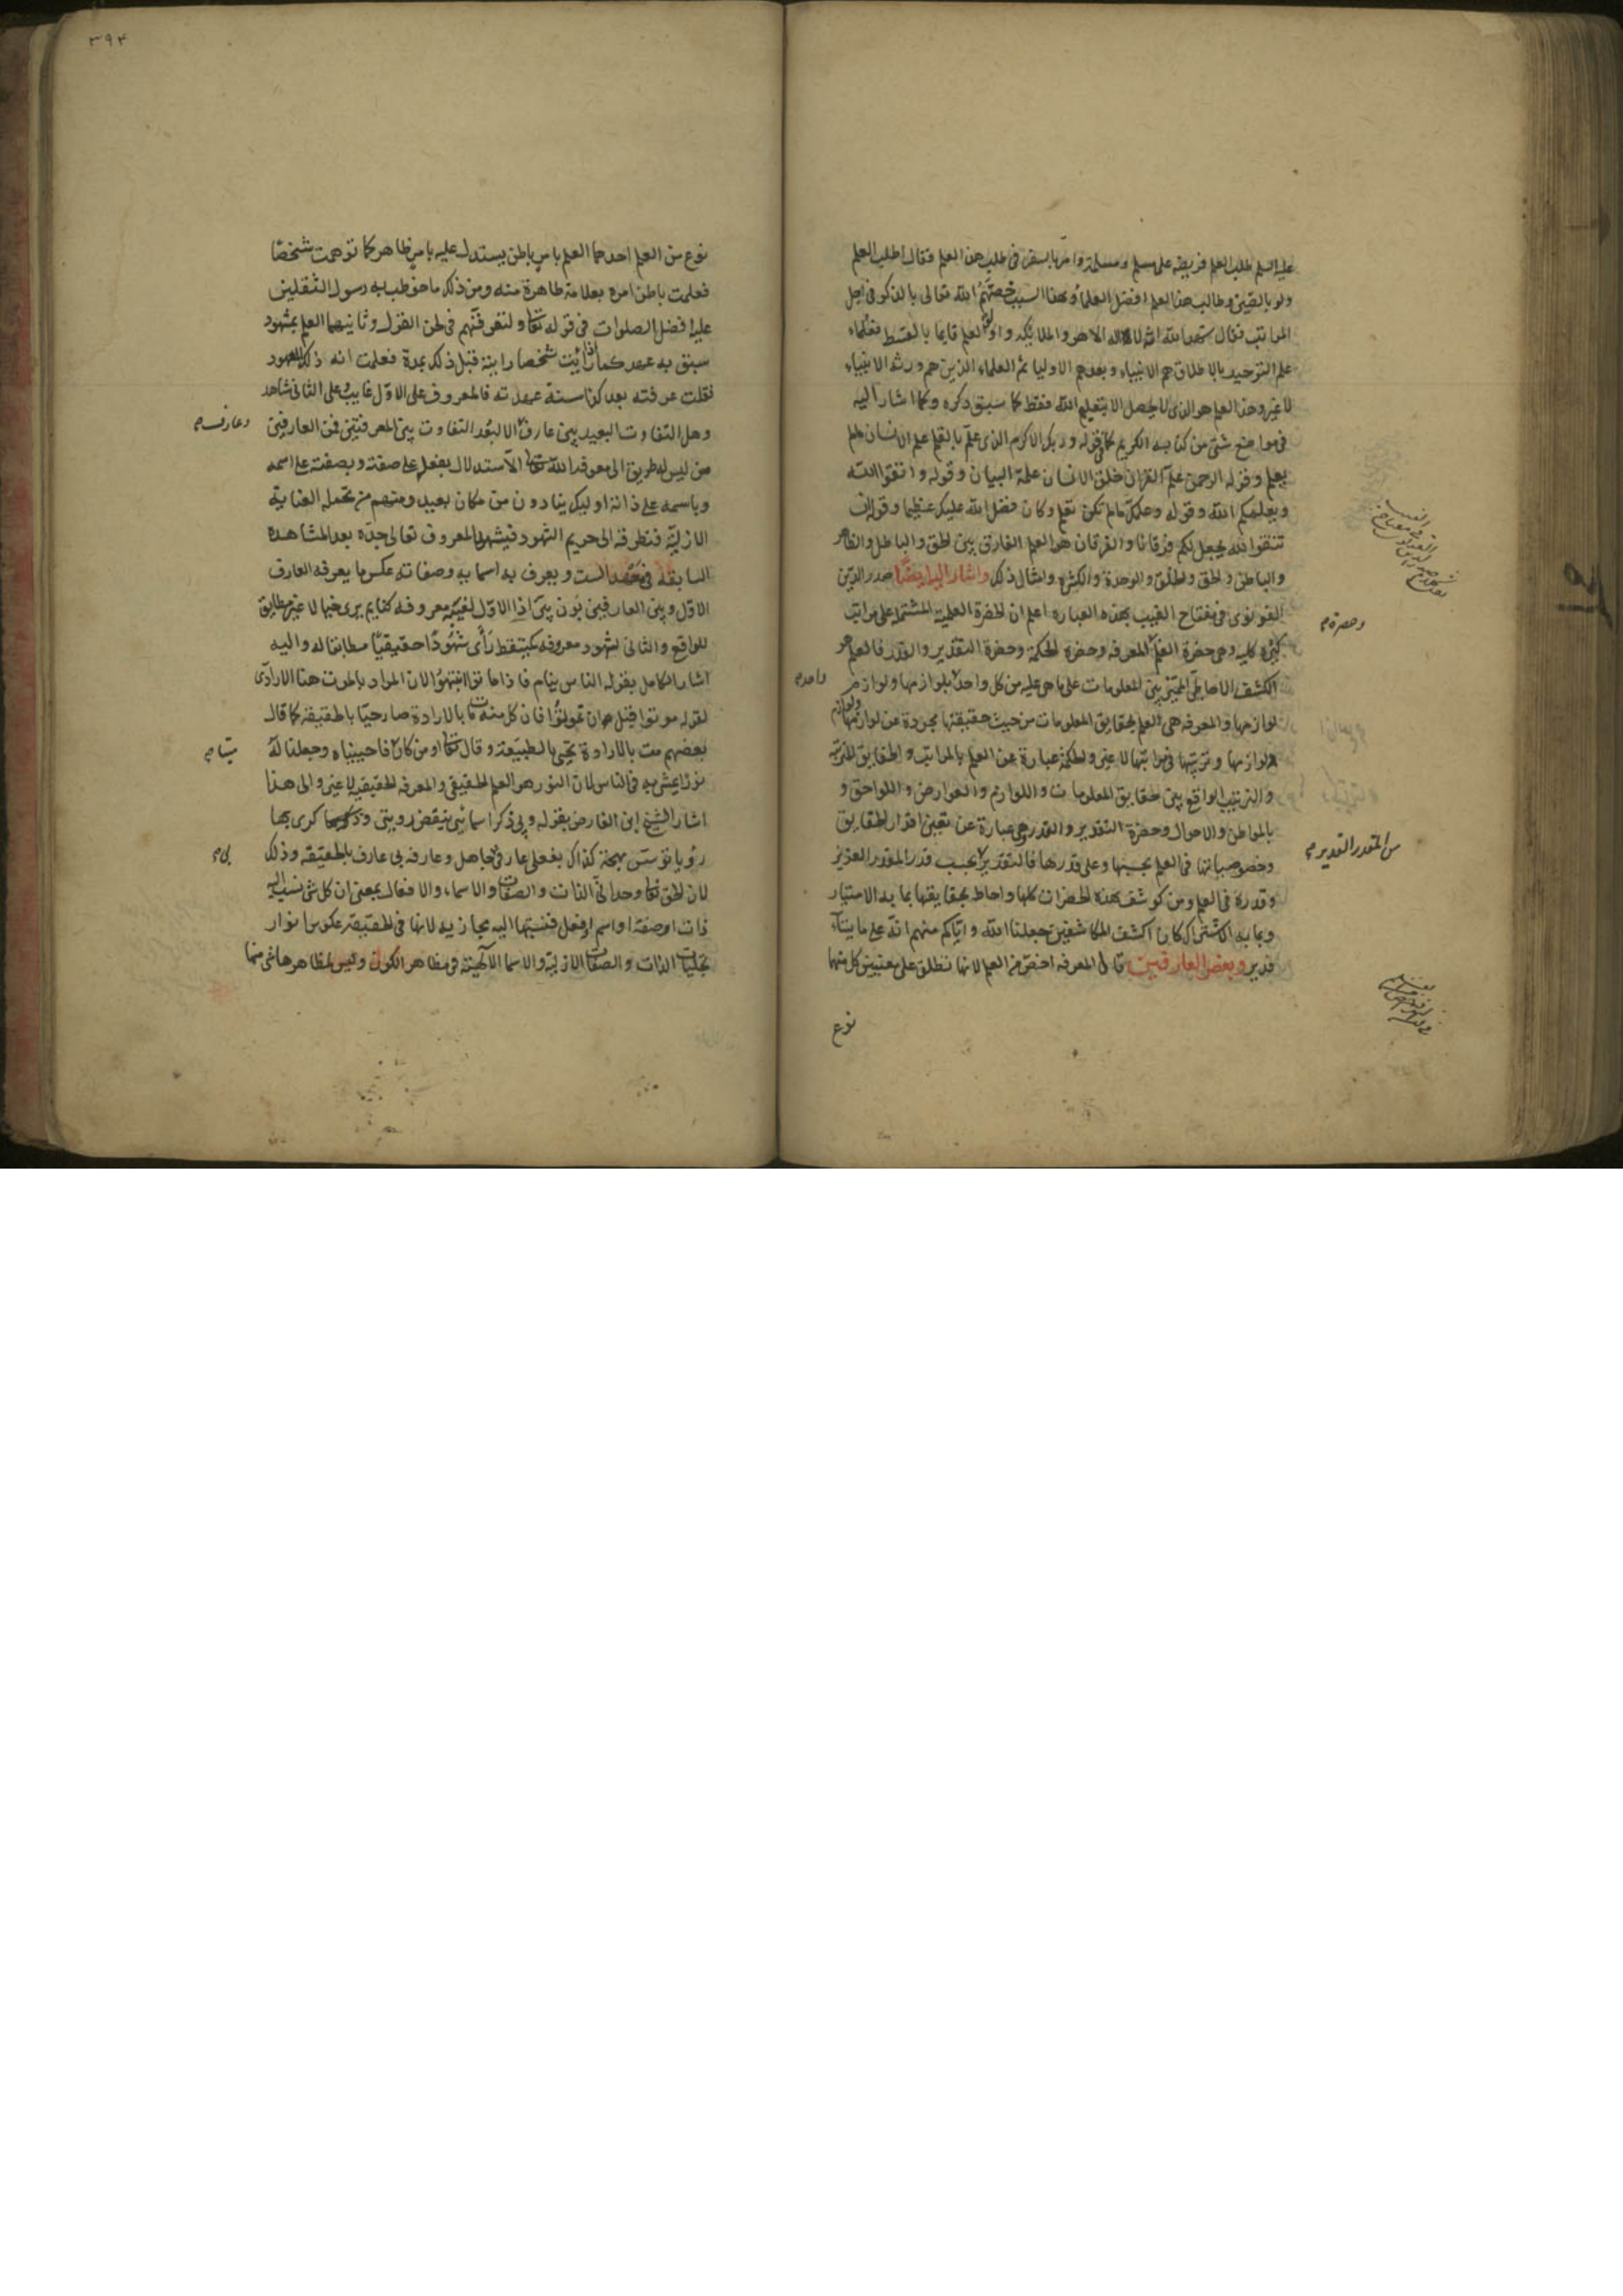 عليه السلم طلب العلم فريضة على مسلم ومسلمة وامر بالسفر فى طلب هذا العلم فقال اطلب العلم
ولو بالصين وطالب هذا العلم افضل العلماء ولهذا السبب خصتهم الله تعالى بالذكر فى اجل
المراتب فقال شهد الله انه لا اله الا هو والملائكة واولو العلم قايما بالقسط فعلماء
علم التوحيد بالاطلاق هم الانبياء وبعدهم الاوليا ثم العلماء الذين هم ورثة الانبياء
لا غير وهذا العلم هو الذى لا يحصل الا بتعليم الله فقط كما سبق ذكره وكما اشار اليه
فى مواضع شتى من كتابه الكريم كما فى قوله وربك الاكرم الذى علم بالقلم علم الانسان ما لم
يعلم وقوله الرحمن علم القران خلق الانسان علمه البيان وقوله واتقوا الله
ويعلمكم الله وقوله وعلمك ما لم تكن تعلم وكان فضل الله عليك عظيما وقوله ان
تتقوا الله يجعل لكم فرقانا والفرقان هو العلم الفارق بين الحق والباطل والظاهر
والباطن والحق والخلق والوحدة والكثرة وامثال ذلك واشار اليه ايضا صدر الدين
القونوى فى مفتاح الغيب بهذه العبارة اعلم ان الحضرة العلمية المشتملة على مراتب
كثيرة كلية وهى حضرة العلم المعرفة وحضرة الحكمة وحضرة التقدير والقدر فالعلم هو
وحضرة
الكشف الاحاطى المميز بين المعلومات على ما هى عليه من كل واحد بلوازمها ولوازم
واحد
لوازمها والمعرفة هى العلم بحقايق المعلومات من حيث حقيقتها مجردة عن لوازمها ولوازم
لوازمها وترتيبها فى مراتبها لا غير والحكمة عبارة عن العلم بالمراتب والحقايق المترتبة
والترتيب الواقع بين حقايق المعلومات واللوازم والعوارض واللواحق و
بالمواطن والاحوال وحضرة التقدير والقدر هى عبارة عن تعين اقدار الحقايق
وخصوصياتها فى العلم بحسبها وعلى قدرها فالتقدير بحسب قدر المقدر العزيز
من المقدر القدير
وقدره فى العلم ومن كوشف بهذه الحضرات كلها واحاط بحقايقها بما به الامتياز
وبما به الاشتراك كان اكشف المكاشفين جعلنا الله واياكم منهم انه على ما يشآء
قدير وبعض العارفين قال المعرفه اخص من العلم لانها تطلق على معنيين كل منها
نوع
٣٩٤
نوع من العلم احدهما العلم بامر باطن يستدل عليه بامر ظاهر كما توهمت شخصا
فعلمت باطن امره بعلامة ظاهرة منه ومن ذلك ما خوطب به رسول الثقلين
عليه افضل الصلوات فى قوله تعالى ولتعرفنهم فى لحن القول وثانيهما العلم بمشهود
سبق به عهد كما اذا رأيت شخصا رايته قبل ذلك بمدة فعلمت انه ذلك المعهود
فقلت عرفته بعد كذا سنة عهدته فالمعروف على الاول غايب وعلى الثانى شاهد
وهل التفاوت البعيد بين عارف الا لبعد التفاوت بين المعرفتين فمن العارفين
وعارف
من ليس له طريق الى معرفة الله تعالى الا الاستدلال بفعله على صفته وبصفته على اسمه
وباسمه على ذاته اولئك ينادون من مكان بعيد ومنهم من تحمله العناية
الازلية فتطرقه الى حريم الشهود فيشهد المعروف تعالى جده بعد المشاهدة
السابقة فى عهد الست ويعرف به اسمايه وصفاته عكس ما يعرفه العارف
الاول وبين العارفين بون بين اذ الاول لغيبة معروفه كنايم يرى خيالا غير مطابق
للواقع والثانى لشهود معروفه كمتيقظ رأى شهودا حقيقيا مطابقا له واليه
اشار الكامل بقوله الناس نيام فاذا ماتوا انتبهوا لان المراد بالموت هنا الارادى
لقوله موتوا قبل ان تموتوا فان كل من مات بالارادة صار حيا بالحقيقة كما قال
بعضهم مت بالارادة تحيى بالطبيعة وقال تعالى او من كان فاحييناه وجعلنا له
ميتا
نورا يمشى به فى الناس لان النور هو العلم الحقيقى والمعرفه الحقيقيه لا غير والى هذا
اشار الشيخ ابن الفارض بقوله وبى ذكر اسمائى تيقظ رويتى وذكرى بها
رؤيا توسن بهجة كذاك بفعلى عارفى جاهل وعارفه بى عارف بالحقيقة وذلك
بى
لان الحق تعالى وحدانى الذات والصفات والاسماء والافعال بمعنى ان كل شى نسب اليه
ذات او صفة او اسم او فعل فنسبتها اليه مجازيه لانها فى الحقيقة عكوس انوار
تجليات الذات والصفات الازلية والاسما الالهية فى مظاهر الكون وليس لمظاهرها شى منها